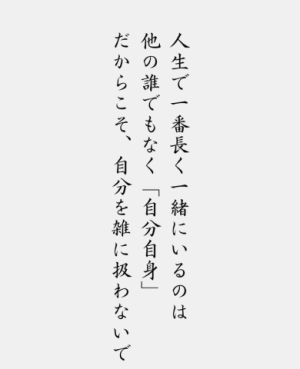 人生で一番長く一緒にいるのは
他の誰でもなく「自分自身」
だからこそ、自分を雑に扱わないで